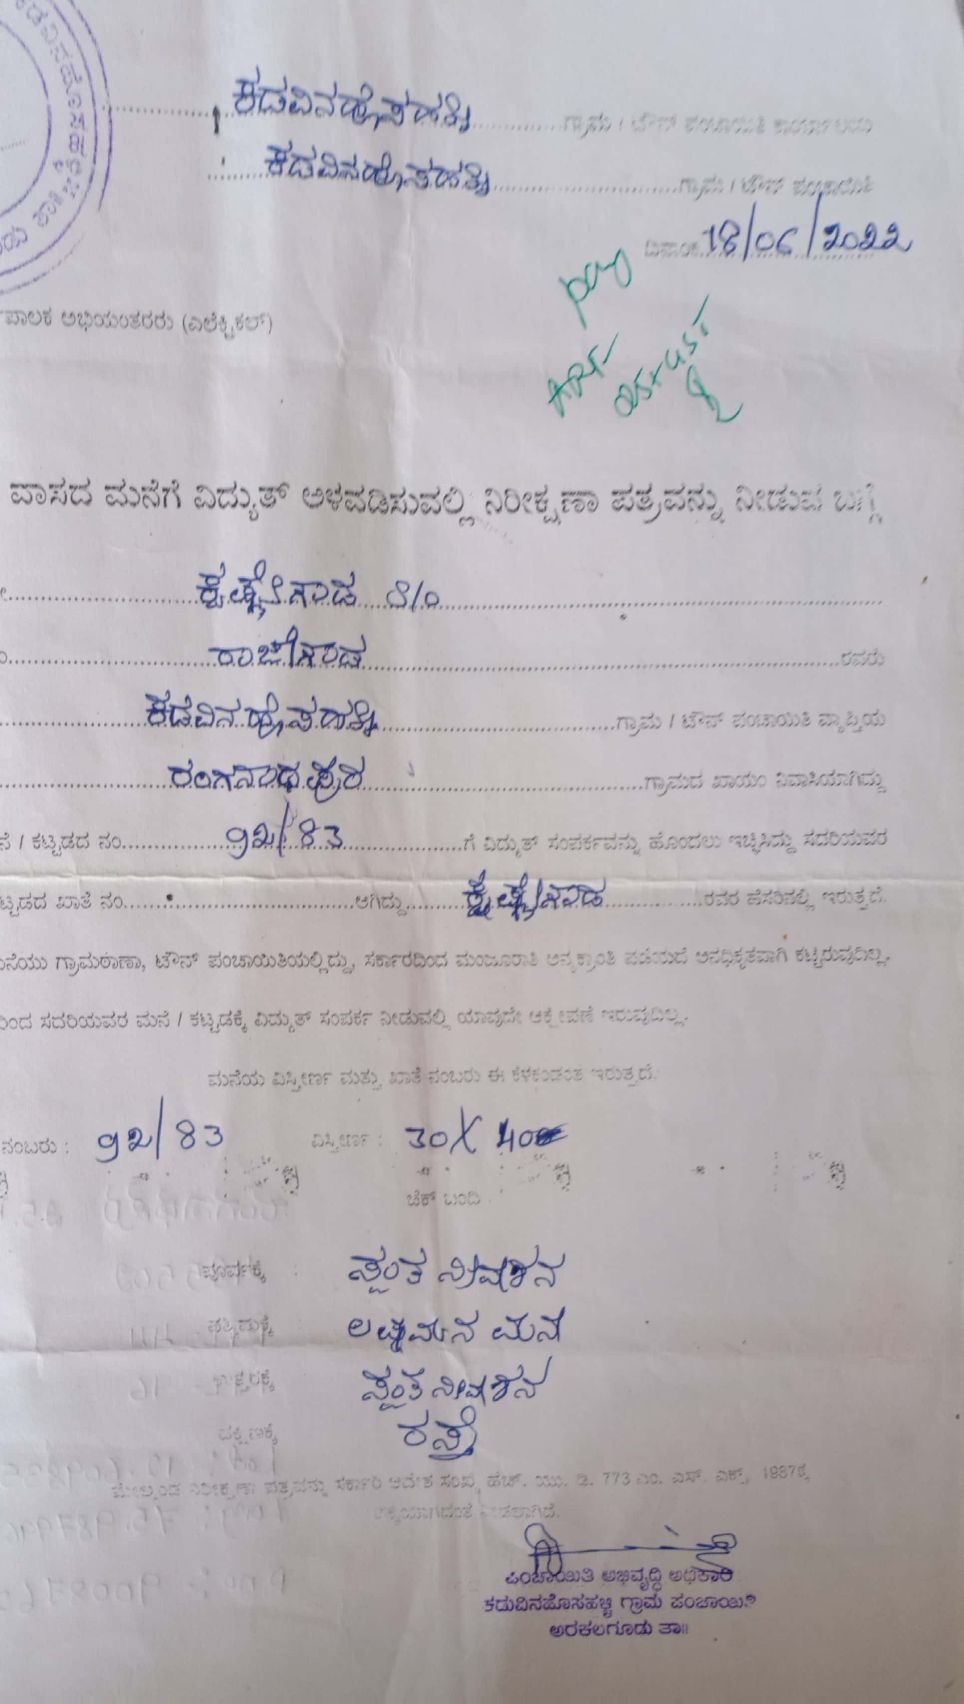 ಕಡುವಿನಹೊಸಹಳ್ಳಿ ಗ್ರಾಮ
ಕಡವಿನಹೊಸಹಳ್ಳಿ ಗ್ರಾಮ / ಟೌನ್ ಪಂಚಾಯಿತಿ ಕಾರ್ಯಾಲಯ
ಕಡವಿನಹೊಸಹಳ್ಳಿ ಗ್ರಾಮ / ಟೌನ್ ಪಂಚಾಯಿತಿ
ದಿನಾಂಕ 18/06/2022
ಪಾಲಕ ಅಭಿಯಂತರರು (ಎಲೆಕ್ಟ್ರಿಕಲ್)
ವಾಸದ ಮನೆಗೆ ವಿದ್ಯುತ್ ಅಳವಡಿಸುವಲ್ಲಿ ನಿರೀಕ್ಷಣಾ ಪತ್ರವನ್ನು ನೀಡುವ ಬಗ್ಗೆ
ಕೃಷ್ಣೇಗೌಡ S/O
ರಾಜೇಗೌಡ ರವರು
ಕಡವಿನಹೊಸಹಳ್ಳಿ ಗ್ರಾಮ / ಟೌನ್ ಪಂಚಾಯಿತಿ ವ್ಯಾಪ್ತಿಯ
ರಂಗನಾಥಪುರ ಗ್ರಾಮದ ಖಾಯಂ ನಿವಾಸಿಯಾಗಿದ್ದು
ನೆ / ಕಟ್ಟಡದ ನಂ 92/83 ಗೆ ವಿದ್ಯುತ್ ಸಂಪರ್ಕವನ್ನು ಹೊಂದಲು ಇಚ್ಛಿಸಿದ್ದು ಸದರಿಯವರ
ಟ್ಟಡದ ಖಾತೆ ನಂ ಆಗಿದ್ದು ಕೃಷ್ಣೇಗೌಡ ರವರ ಹೆಸರಿನಲ್ಲಿ ಇರುತ್ತದೆ.
ನೆಯು ಗ್ರಾಮಠಾಣಾ, ಟೌನ್ ಪಂಚಾಯಿತಿಯಲ್ಲಿದ್ದು, ಸರ್ಕಾರದಿಂದ ಮಂಜೂರಾತಿ ಅನ್ಯಕ್ರಾಂತಿ ಪಡೆಯದೆ ಅನಧಿಕೃತವಾಗಿ ಕಟ್ಟಿರುವುದಿಲ್ಲ.
ಿಂದ ಸದರಿಯವರ ಮನೆ / ಕಟ್ಟಡಕ್ಕೆ ವಿದ್ಯುತ್ ಸಂಪರ್ಕ ನೀಡುವಲ್ಲಿ ಯಾವುದೇ ಆಕ್ಷೇಪಣೆ ಇರುವುದಿಲ್ಲ.
ಮನೆಯ ವಿಸ್ತೀರ್ಣ ಮತ್ತು ಖಾತೆ ನಂಬರು ಈ ಕೆಳಕಂಡಂತೆ ಇರುತ್ತದೆ.
ನಂಬರು : 92/83 ವಿಸ್ತೀರ್ಣ : 30X40
ಚೆಕ್ ಬಂದಿ
ಪೂರ್ವಕ್ಕೆ : ಸ್ವಂತ ನಿವೇಶನ
ಪಶ್ಚಿಮಕ್ಕೆ ಲಕ್ಷ್ಮಮ್ಮನ ಮನೆ
ಉತ್ತರಕ್ಕೆ ಸ್ವಂತ ನಿವೇಶನ
ದಕ್ಷಿಣಕ್ಕೆ ರಸ್ತೆ
ಮೇಲ್ಕಂಡ ನಿರೀಕ್ಷಣಾ ಪತ್ರವನ್ನು ಸರ್ಕಾರಿ ಆದೇಶ ಸಂಖ್ಯೆ ಹೆಚ್. ಯು. ಡಿ. 773 ಎಂ. ಎಸ್. ಎಕ್ಸ್. 1987ಕ್ಕೆ
ನೀಡಲಾಗಿದೆ.
ಪಂಚಾಯಿತಿ ಅಭಿವೃದ್ಧಿ ಅಧಿಕಾರಿ
ಕಡುವಿನಹೊಸಹಳ್ಳಿ ಗ್ರಾಮ ಪಂಚಾಯಿತಿ
ಅರಕಲಗೂಡು ತಾ॥